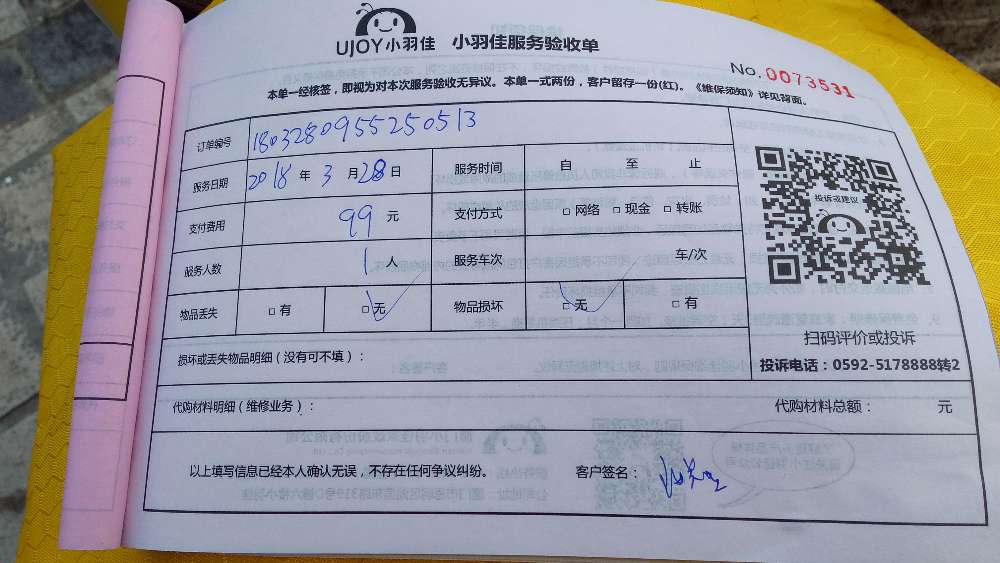 UJOY小羽佳 小羽佳服务验收单
No. 0073531
本单一经核签，即视为对本次服务验收无异议。本单一式两份，客户留存一份(红)。《维保须知》详见背面。
订单编号 180328095525 0513
服务日期 2018 年 3 月 28 日 服务时间 自 至 止
支付费用 99 元 支付方式 □ 网络 □ 现金 □ 转账
服务人数 1 人 服务车次 车/次
物品丢失 □ 有 □ 无 物品损坏 □ 无 □ 有
投诉或建议
扫码评价或投诉
投诉电话：0592-5178888转2
损坏或丢失物品明细（没有可不填）：
代购材料明细（维修业务）： 代购材料总额： 元
以上填写信息已经本人确认无误，不存在任何争议纠纷。 客户签名：